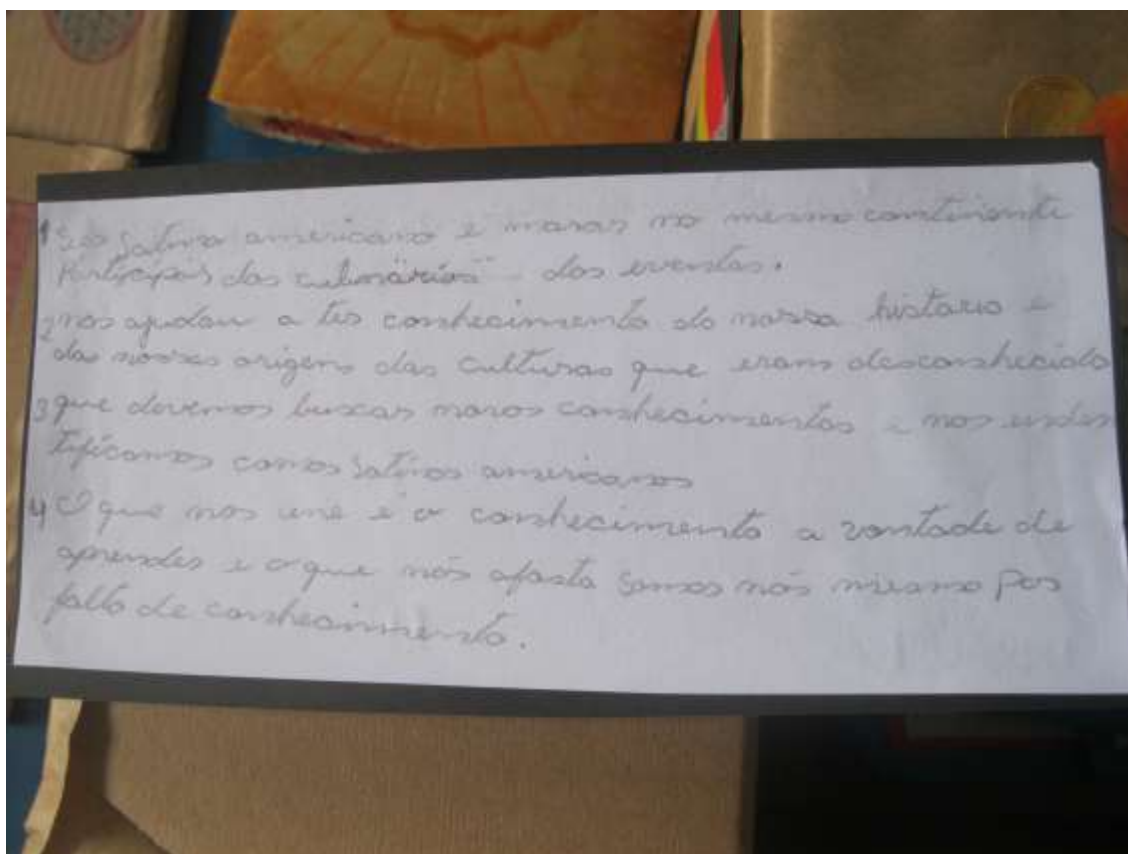 1 Ser latino americano é morar no mesmo continente
Participar das culinárias dos eventos.
2 nos ajudou a ter conhecimento da nossa historia e
das nossas origens das culturas que eram desconhecida
3 que devemos buscar novos conhecimentos e nos inden
tificamos como latinos americanos
4 O que nos une é o conhecimento a vontade de
aprender e o que nós afasta somos nós mesmo por
falta de conhecimento.